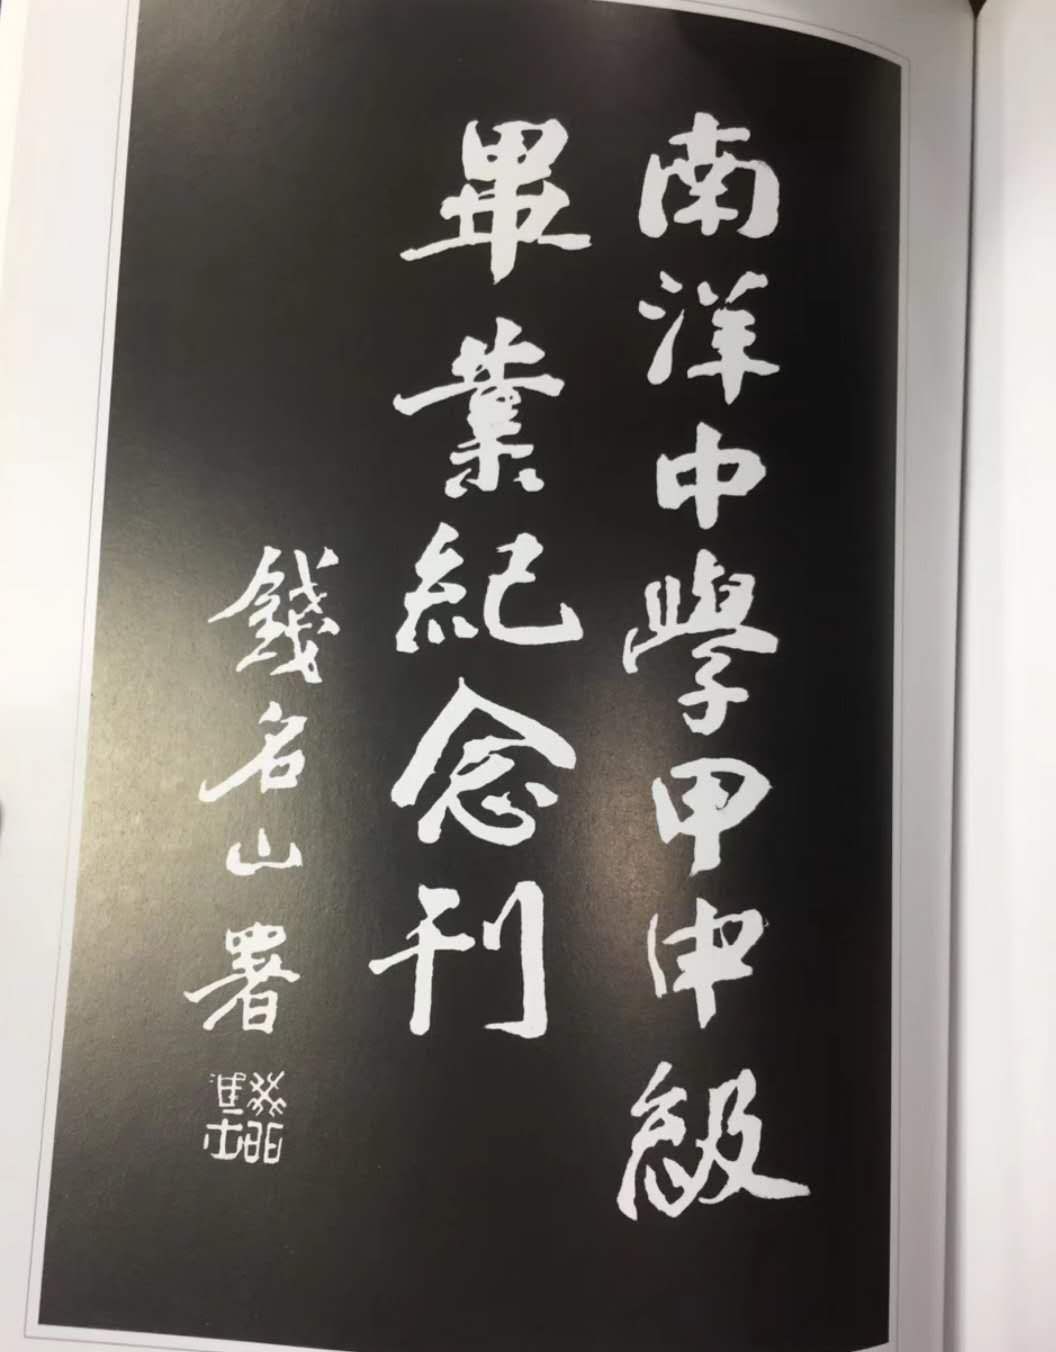 南洋中學甲申級
畢業紀念刊
錢名山署
癸卯進士